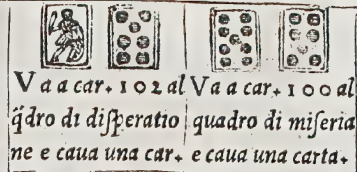 Va a car. 102 al
q̃dro di diſperatio
ne e caua una car.
Va a car. 100 al
quadro di miſeria
e caua una carta.